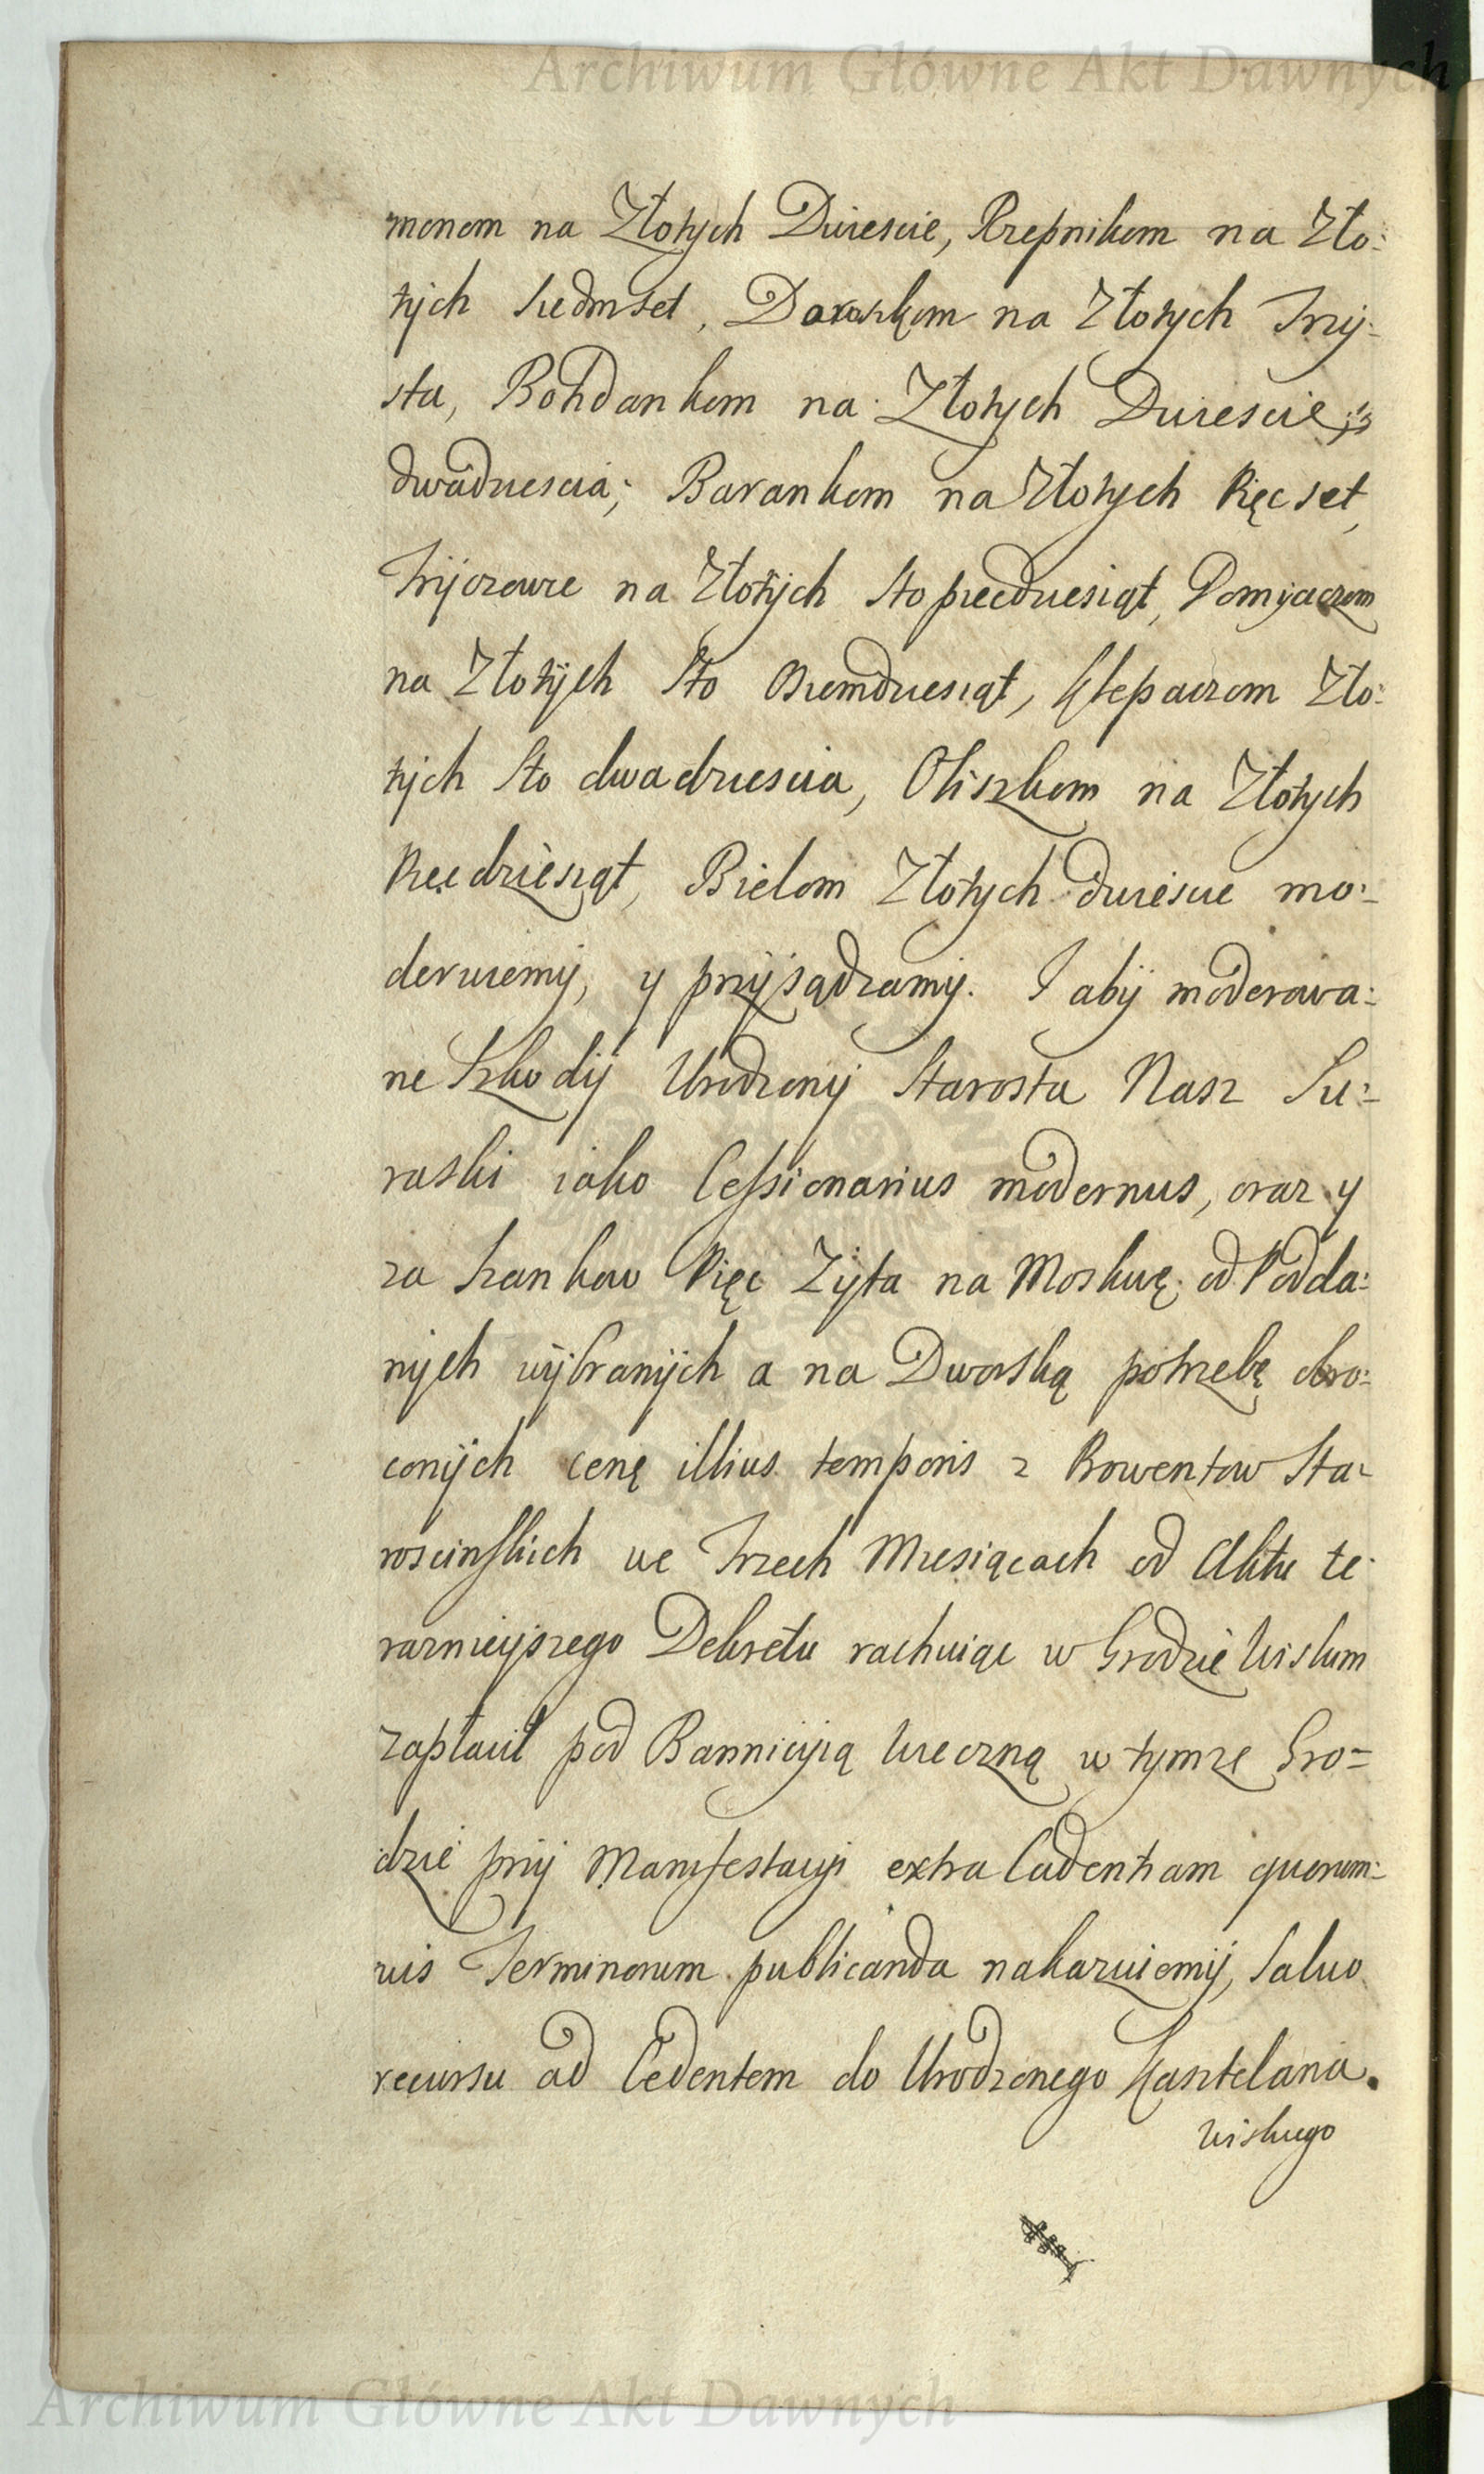 Archiwum Główne Akt Dawnych
monom na Złotych Dwiescie, Rzepnikom na Zło:
tych Siedmset, Daroszkom na Złotych Trzy:
sta, Bohdankom na Złotych Dwiescie
dwadziescia; Barankom na Złotych Pięcset,
na Złotych Sto piecdziesiąt, Pomyiaczom
na Złotych Sto Osiemdziesiąt, Klepaczom Zło:
tych Sto dwadziescia, Oliszkom na Złotych
Piecdziesiąt, Bielom Złotych dwiescie mo:
deruiemy, y przysądzamy. I aby moderowa:
ne Szkody Urodzony Starosta Nasz Su:
raski iako Cessionarius modernus, oraz y
za Szankow Pięc Zyta na Moskwę od Podda:
nych wybranych a na Dworską potrzebę obro:
conych cenę illius temporis z Prowentow Sta:
roscinskich we Trzech Miesiącach od Aktu te:
raznieyszego Dekretu rachuiąc w Grodzie Wiskim
zapłacił pod Bannicyią Wieczną w tymze Gro=
dzie przy Manifestacyi extra Cadentiam quorum:
vis Terminorum publicanda nakazuiemy, Salvo
recursu ad Cedentem do Urodzonego Kasztelana
Wiskiego
Archiwum Główne Akt Dawnych